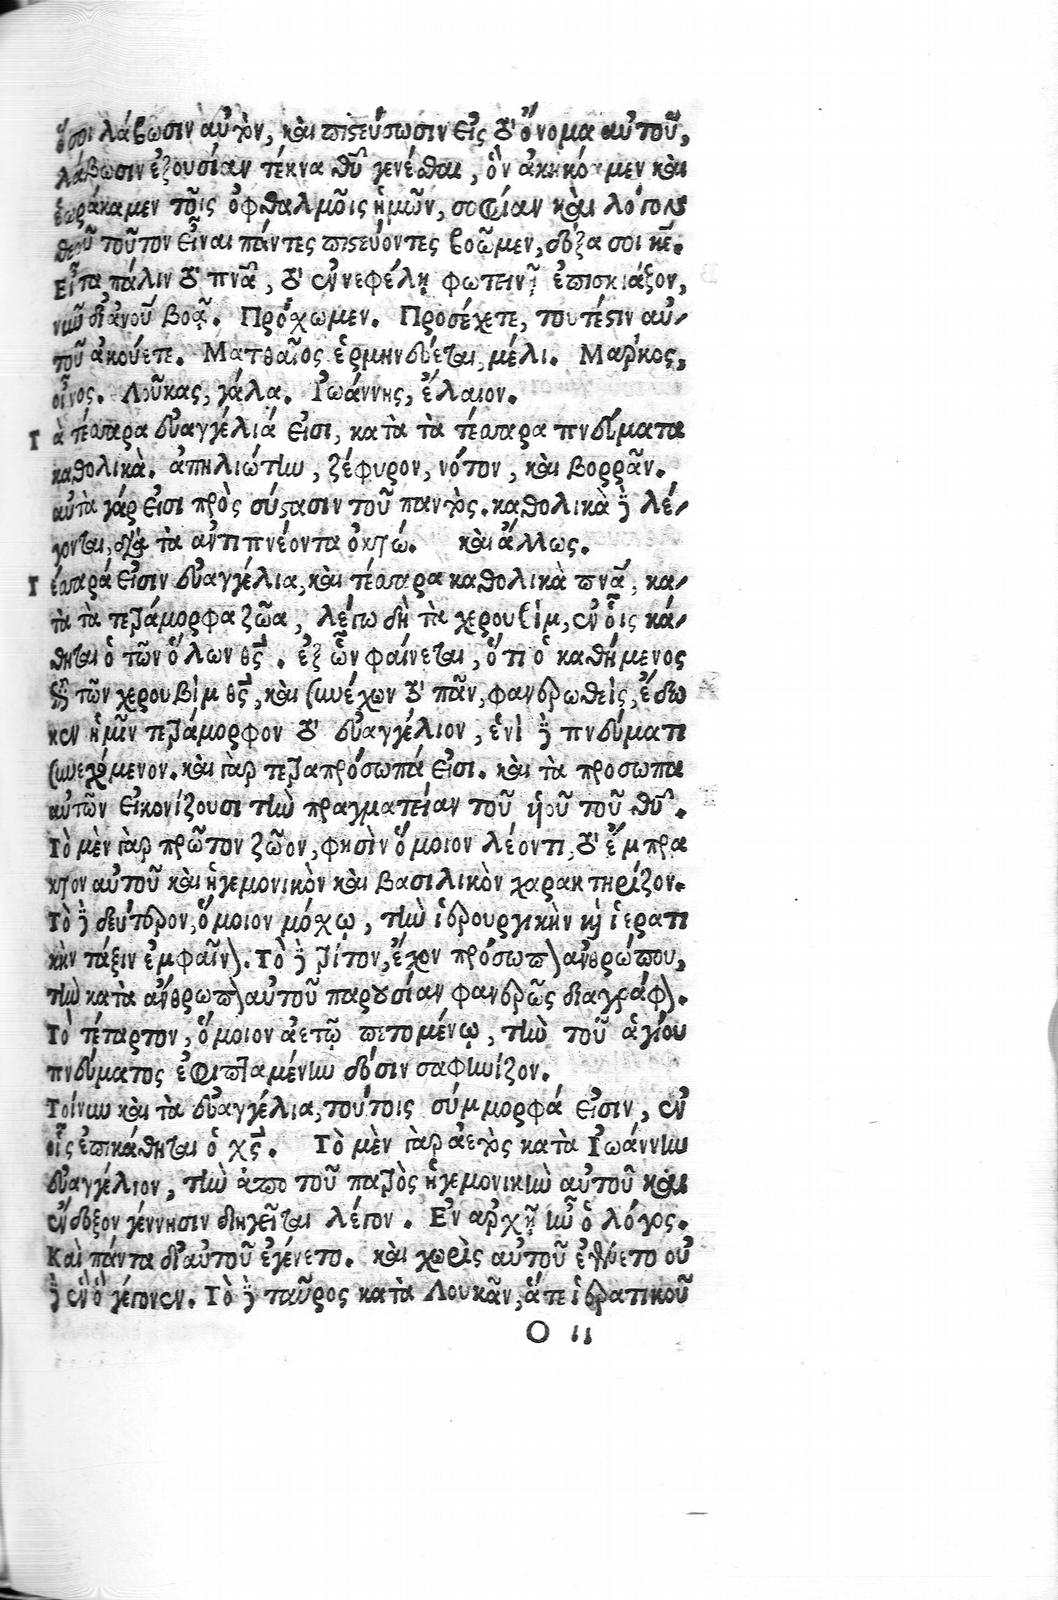 ὅσοι λάβωσιν αὐτὸν, καὶ πιστεύσωσιν εἰς τὸ ὄνομα αὐτοῦ,
λάβωσιν ἐξουσίαν τέκνα θῦ γενέσθαι, ὃν ἀκηκόαμεν καὶ
ἑωράκαμεν τοῖς ὀφθαλμοῖς ἡμῶν, σοφίαν καὶ λόγον
θεοῦ τοῦτον εἶναι πάντες πιστεύοντες βοῶμεν, δόξα σοι κε̄.
Εἶτα πάλιν τὸ πνᾶ, τὸ ἐν νεφέλῃ φωτεινῇ ἐπισκιάξον,
νιῦ δι' ἀνοῦ βοᾷ. Πρόχωμεν. Προσέχετε, τουτέστιν αὐ-
τοῦ ἀκούετε. Ματθαῖος ἑρμηνεύεται, μέλι. Μαρκος,
οἶνος. Λοῦκας, γάλα. Ἰωάννης, ἔλαιον.
Τὰ τέσσαρα εὐαγγέλιά εἰσι, κατὰ τὰ τέσσαρα πνεύματα
καθολικὰ. ἀπηλιώτην, ζέφυρον, νότον, καὶ βορρᾶν.
αὐτὰ γάρ εἰσι πρὸς σύστασιν τοῦ παντὸς. καθολικὰ δὲ λέ-
γονται, διὰ τὰ ἀντιπνέοντα ὀκτώ. καὶ ἄλλως.
Τέσσαρά εἰσιν εὐαγγέλια, καὶ τέσσαρα καθολικὰ πνᾶ, κα-
τὰ τὰ τετράμορφα ζῶα, λέγω δὴ τὰ χερουβὶμ, ἐν οἷς κά-
θηται ὁ τῶν ὅλων θς. ἐξ ὧν φαίνεται, ὅτι ὁ καθήμενος
ἐπὶ τῶν χερουβὶμ θς, καὶ συνέχων τὸ πᾶν, φανερωθεὶς, ἔδω
κεν ἡμῖν τετράμορφον τὸ εὐαγγέλιον, ἑνὶ δὲ πνεύματι
συνεχόμενον. καὶ γὰρ τετραπρόσωπά εἰσι. καὶ τὰ προσωπα
αὐτῶν εἰκονίζουσι τὴν πραγματείαν τοῦ ὑοῦ τοῦ θῦ.
Τὸ μὲν γὰρ πρῶτον ζῶον, φησὶν ὅμοιον λέοντι, τὸ ἔμπρα
κτον αὐτοῦ καὶ ἡγεμονικὸν καὶ βασιλικὸν χαρακτηρίζον.
Τὸ δὲ δεύτερον, ὅμοιον μόχω, τὴν ἱερουργικὴν καὶ ἱερατι
κὴν τάξιν ἐμφαῖνον. Τὸ δὲ τρίτον, ἔχον πρόσωπον ἀνθρώπου,
τὴν κατὰ ἄνθρωπον αὐτοῦ παρουσίαν φανερῶς διαγράφον.
Τὸ τέταρτον, ὅμοιον ἀετῷ πετομένῳ, τὴν τοῦ ἁγίου
πνεύματος ἐφιπταμένην δόσιν σαφηνίζον.
Τοίνυν καὶ τὰ εὐαγγέλια, τούτοις σύμμορφά εἰσιν, ἐν
οἷς ἐπικάθηται ὁ χς. Τὸ μὲν γὰρ ἀετὸς κατὰ Ἰωάννην
εὐαγγέλιον, τὴν ἀπο τοῦ πατρὸς ἡγεμονικὴν αὐτοῦ καὶ
ἔνδοξον γέννησιν διηγεῖται λέγον. Εν αρχῇ ἦν ὁ λόγος.
Καὶ πάντα δι' αὐτοῦ ἐγένετο. καὶ χωρὶς αὐτοῦ ἐγένετο οὐ
δὲ ἓν ὃ γέγονεν. Τὸ δὲ ταῦρος κατὰ Λουκᾶν, ἅτε ἱερατικοῦ
O ιι